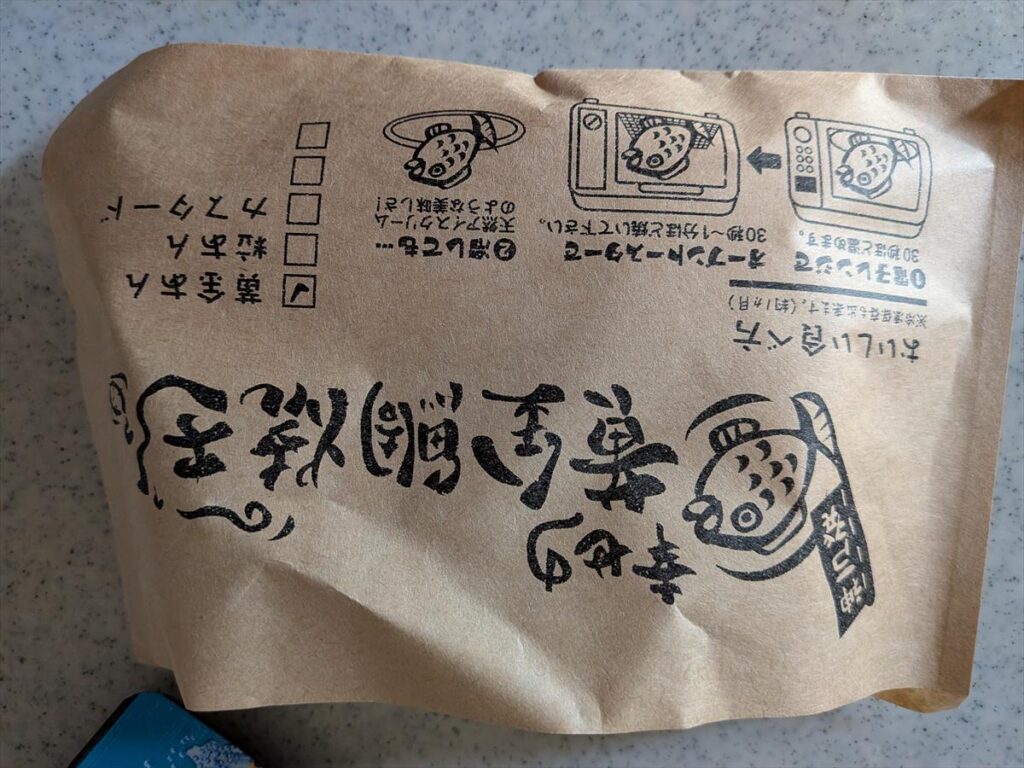 幸せの
黄金鯛焼き
おいしい食べ方
※冷凍保存も出来ます。(約1ヵ月)
❶電子レンジで
30秒ほど温めます。
オーブントースターで
30秒〜1分ほど焼いて下さい。
❷冷しても…
天然アイスクリーム
のような美味しさ!
黄金あん
粒あん
カスタード